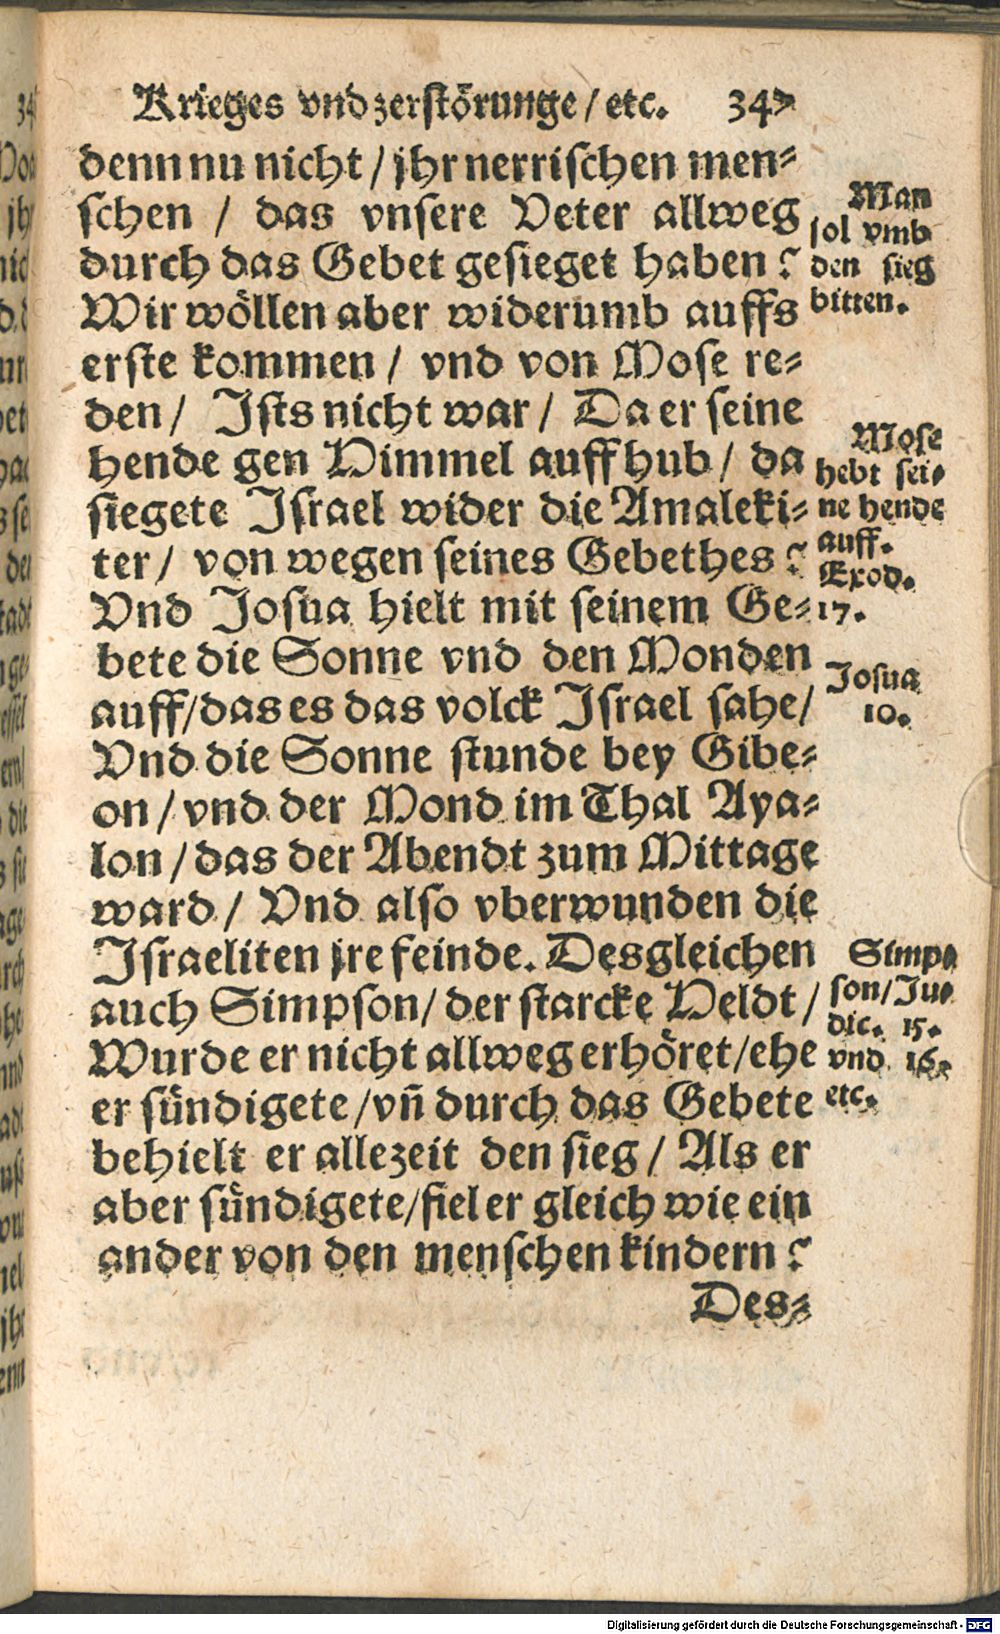 Krieges vnd zerstörunge / etc. 347
denn nu nicht / jhr nerrischen men⸗
schen / das vnsere Veter allweg
durch das Gebet gesieget haben?
Wir wöllen aber widerumb auffs
erste kommen / vnd von Mose re⸗
den / Ists nicht war / Da er seine
hende gen Himmel auff hub / da
siegete Israel wider die Amaleki⸗
ter / von wegen seines Gebethes?
Vnd Josua hielt mit seinem Ge⸗
bete die Sonne vnd den Monden
auff / das es das volck Israel sahe /
Vnd die Sonne stunde bey Gibe⸗
on / vnd der Mond im Thal Aya⸗
lon / das der Abendt zum Mittage
ward / Vnd also vberwunden die
Israeliten jre feinde. Desgleichen
auch Simpson / der starcke Heldt /
Wurde er nicht allweg erhöret / ehe
er sündigete / vñ durch das Gebete
behielt er allezeit den sieg / Als er
aber sündigete / fiel er gleich wie ein
ander von den menschen kindern?
Des⸗
Man
sol vmb
den sieg
bitten.
Mose
hebt sei⸗
ne hende
auff.
Exod.
17.
Josua
10.
Simp⸗
son / Ju⸗
dic. 15.
vnd 16.
etc.
Digitalisierung gefördert durch die Deutsche Forschungsgemeinschaft - DFG